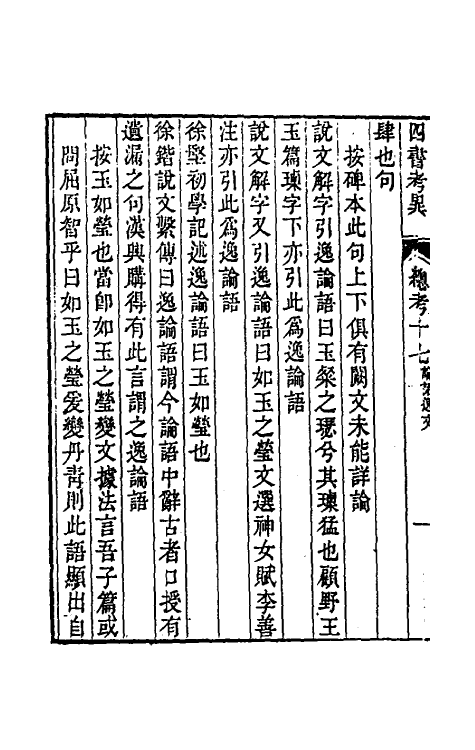 四書考異　總考十七論語逸文　一
肆也句
按碑本此句上下俱有闕文未能詳論
說文解字引逸論語曰玉粲之瑟兮其瓅猛也顧野王
玉篇瓅字下亦引此爲逸論語
說文解字又引逸論語曰如玉之瑩文選神女賦李善
注亦引此爲逸論語
徐堅初學記述逸論語曰玉如瑩也
徐鍇說文繫傳曰逸論語謂今論語中辭古者口授有
遺漏之句漢興購得有此言謂之逸論語
按玉如瑩也當卽如玉之瑩變文據法言吾子篇或
問屈原智乎曰如玉之瑩爰變丹靑則此語顯出自